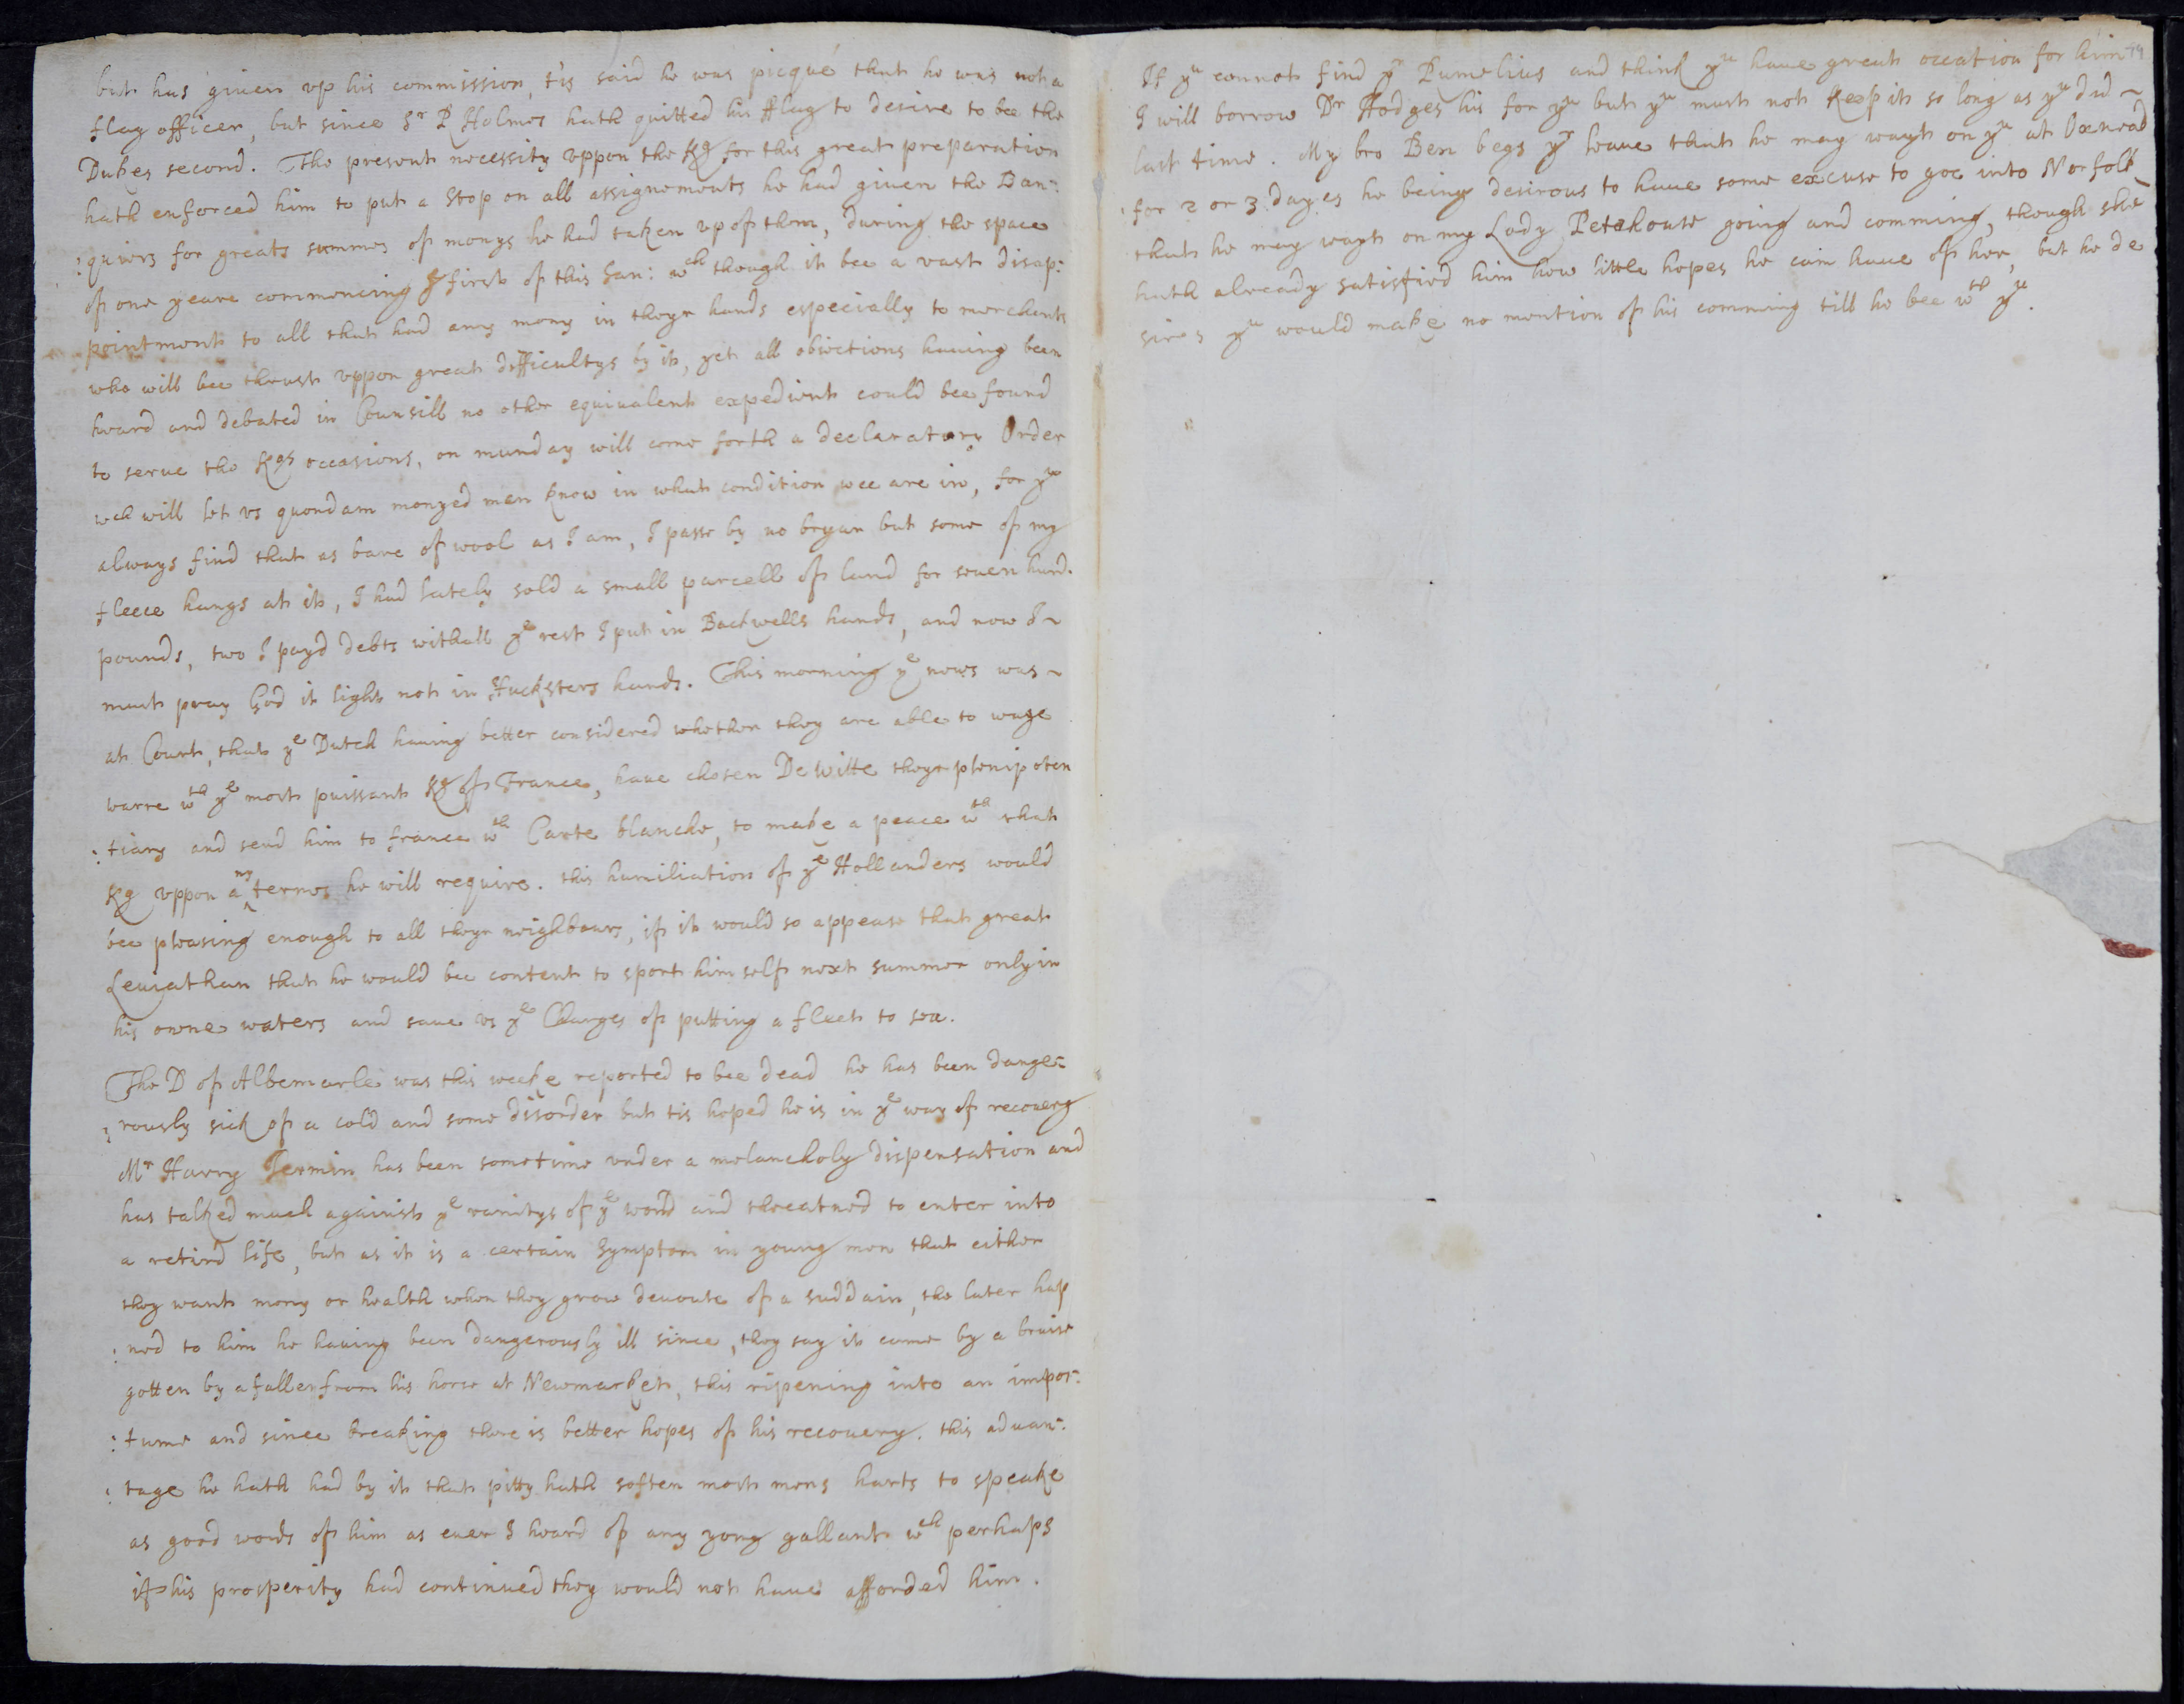 but has giuen vp his commission, t'is said he was picqué that he was not a
flag officer, but since Sr R Holmes hath quitted his fflag to desire to bee the
Dukes second. The present necessity vppon the Kg for this great preparation
hath enforced him to put a Stop on all assignements he had giuen the Ban-:
:quiers for greate summes of monys he had taken vp of them, during the space
of one yeare commencing ye first of this Jan: wch though it bee a vast disap:
pointment to all that had any mony in theyr hands especially to merchants
who will bee thrust vppon great difficultys by it, yet all obiections hauing been
heard and debated in Counsill no other equiualent expedient could bee found
to serue the Kgs occasions, on munday will come forth a declaratory Order
wch will let vs quondam monyed men know in what condition wee are in, for ye
always find that as bare of wool as I am, I passe by no bryar but some of my
fleece hangs at it, I had lately sold a small parcell of land for seuen hund.
pounds, two I payd debts withall ye rest I put in Backwells hands, and now I ~
must pray God it light not in Hucksters hands. This morning ye news was ~
at Court, that ye Dutch hauing better considered whether they are able to wage
warre wth ye most puissant Kg of France, haue chosen De Witte theyr plenipoten
:tiary and send him to france wth Carte blanche, to make a peace wth that
Kg vppon any termes he will require. this humiliation of ye Hollanders would
bee pleasing enough to all theyr neighbours, if it would so appease that great
Leuiathan that he would bee content to sport himself next summer only in
his owne waters and saue vs ye Charges of putting a fleet to sea.
The D of Albemarle was this weeke reported to bee dead he has been dange-
:rously sick of a cold and some disorder but tis hoped he is in ye way of recouery
Mr Harry Jermin has been sometime vnder a melancholy dispensation and
has talked much against ye vanitys of ye world and threatned to enter into
a retird life, but as it is a certain Symptom in young men that either
they want mony or health when they grow deuoute of a suddain, the later hap
:ned to him he hauing been dangerously ill since, they say it came by a bruise
gotten by a fall from his horse at Newmarket, this ripening into an impos-:
:tume and since breaking there is better hopes of his recouery. this aduan-:
:tage he hath had by it that pitty hath soften most mens harts to speake
as good words of him as euer I heard of any yong gallant wch perhaps
if his prosperity had continued they would not haue afforded him.
If yu cannot find yr Pumelius and think yu haue great occation for him
I will borrow Dr Hodges his for yu but yu must not keep it so long as yu did ~
last time. My bro Ben begs yr leaue that he may wayt on yu at Oxnead
for 2 or 3 dayes he being desirous to haue some excuse to goe into Norfolk
that he may wayt on my Lady Petrhouse going and comming, though she
hath already satisfied him how little hopes he can haue of her, but he de
sires yu would make no mention of his comming till he bee wth yu.